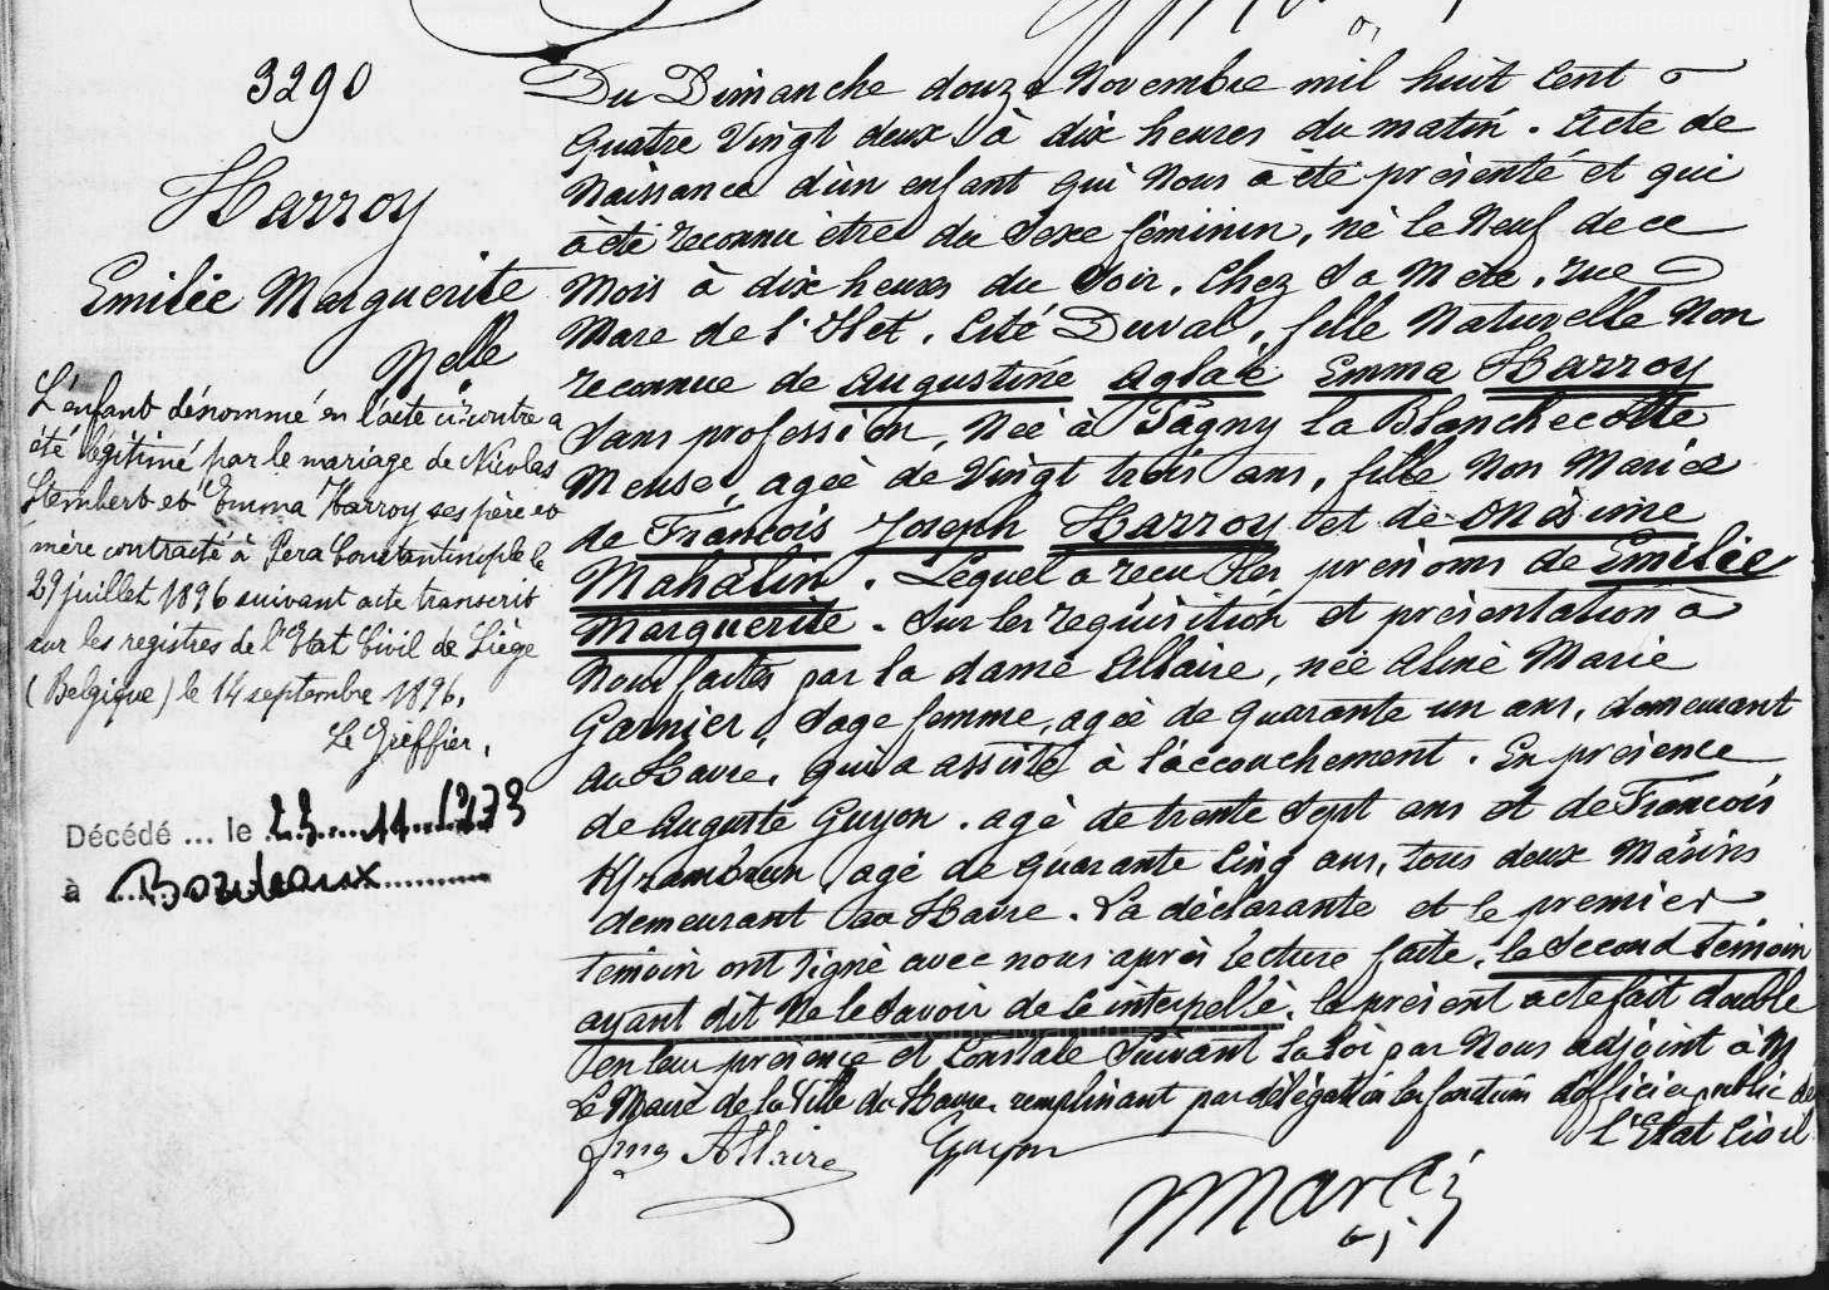 3290
Harroy
Emilie Marguerite
Nelle
L'enfant dénommé en l'acte ci-contre a
été légitimé par le mariage de Nicolas
Stembert et Emma Harroy ses père et
mère contracté à Pera Constantinople le
29 juillet 1896 suivant acte transcrit
sur les registres de l'Etat Civil de Liège
(Belgique) le 14 septembre 1896.
Le Greffier,
Décédé ... le 23 11 1973
à Bordeaux
Du Dimanche douze Novembre mil huit Cent
Quatre Vingt deux à dix heures du matin. Acte de
Naissance d'un enfant qui Nous a été présenté et qui
a été reconnu être du Sexe féminin, né le Neuf de ce
Mois à dix heures du Soir, Chez Sa Mère, rue
Mare de l'Ilet, Cité Duval, fille Naturelle Non
reconnue de Augustine Aglaé Emma Harroy
Sans profession, Née à Pagny la Blanchecôtte
Meuse, agée de Vingt trois ans, fille Non Mariée
de François Joseph Harroy et de Onésime
Mahalin. Lequel a reçu les prénoms de Emilie
Marguerite. Sur les requisition et présentation à
Nous faites par la dame Allaire, née Aline Marie
Garnier, Sage femme, agée de quarante un ans, demeurant
au Havre, qui a assisté à l'accouchement. En présence
de Auguste Guyon, agé de trente Sept ans et de François
agé de quarante Cinq ans, tous deux Marins
demeurant au Havre. La déclarante et le premier
témoin ont Signé avec nous après lecture faite, le Second témoin
ayant dit Ne le Savoir de ce interpellé, le présent acte fait double
en leur présence et Constaté Suivant la Loi par Nous adjoint à M
Le Maire de la Ville du Havre, remplissant par délégation les fonctions d'officier public de
L'Etat Civil
fme Allaire Guyon